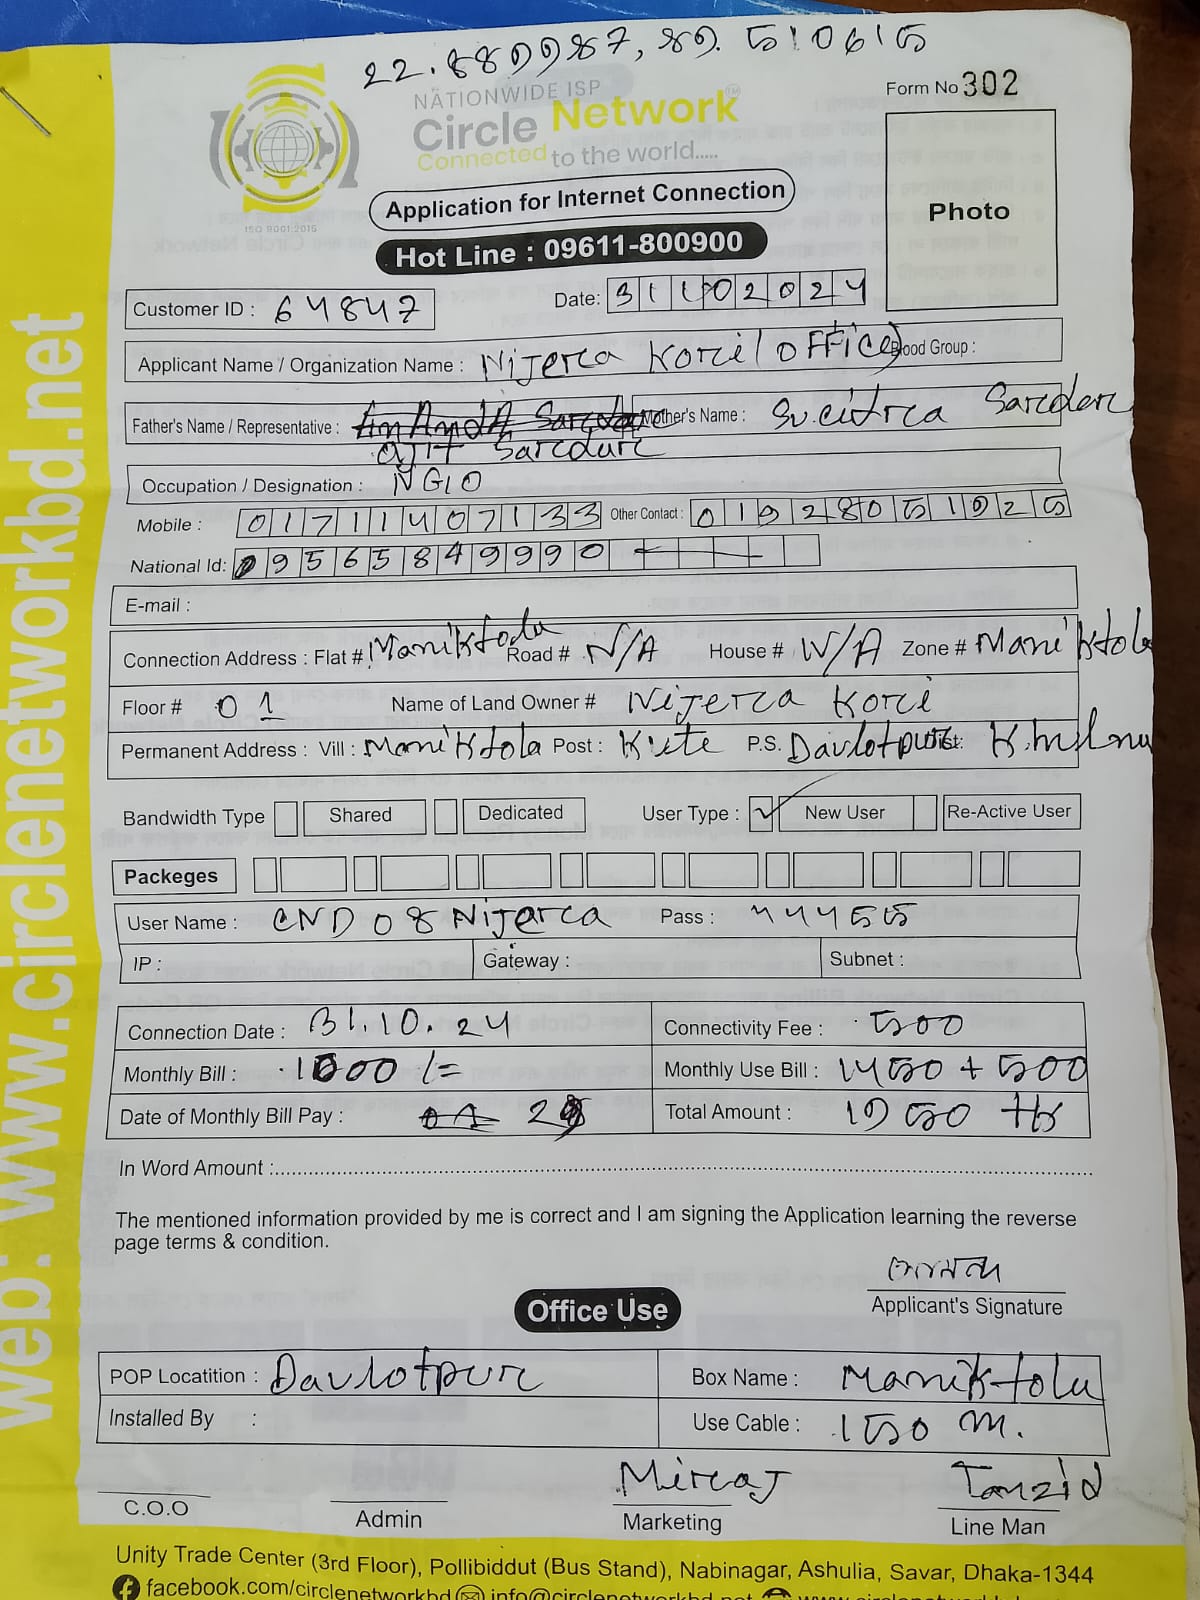 22.889987, 89.510615
NATIONWIDE ISP
Circle Network TM
Connected to the world.....
ISO 9001:2015
Form No 302
Photo
Application for Internet Connection
Hot Line : 09611-800900
Customer ID : 64847
Date: 31102024
Applicant Name / Organization Name : Nijerca Korci (office) Blood Group :
Father's Name / Representative : Mother's Name : Sucitrca Sarcdarc
ajit Sarcdarc
Occupation / Designation : NGO
Mobile : 01711407133 Other Contact : 01928051925
National Id: 9565849990
E-mail :
Connection Address : Flat # Maniktola Road # N/A House # N/A Zone # Maniktola
Floor # 01 Name of Land Owner # Nijerca Korci
Permanent Address : Vill : Maniktola Post : Kuete P.S. Davlotpur Dist: Khulna
Bandwidth Type Shared Dedicated User Type : ✓ New User Re-Active User
Packeges
User Name : CND08Nijerca Pass : 44455
IP : Gateway : Subnet :
Connection Date : 31.10.24 Connectivity Fee : 500
Monthly Bill : 1000 /= Monthly Use Bill : 1450 + 500
Date of Monthly Bill Pay : Total Amount : 1950 Tk
In Word Amount :
The mentioned information provided by me is correct and I am signing the Application learning the reverse
page terms & condition.
Applicant's Signature
Office Use
POP Locatition : Davlotpur Box Name : Maniktola
Installed By : Use Cable : 150 m.
Mircaj Tanzid
C.O.O Admin Marketing Line Man
Unity Trade Center (3rd Floor), Pollibiddut (Bus Stand), Nabinagar, Ashulia, Savar, Dhaka-1344
facebook.com/circlenetworkbd info@circlenetworkbd.net
web: www.circlenetworkbd.net